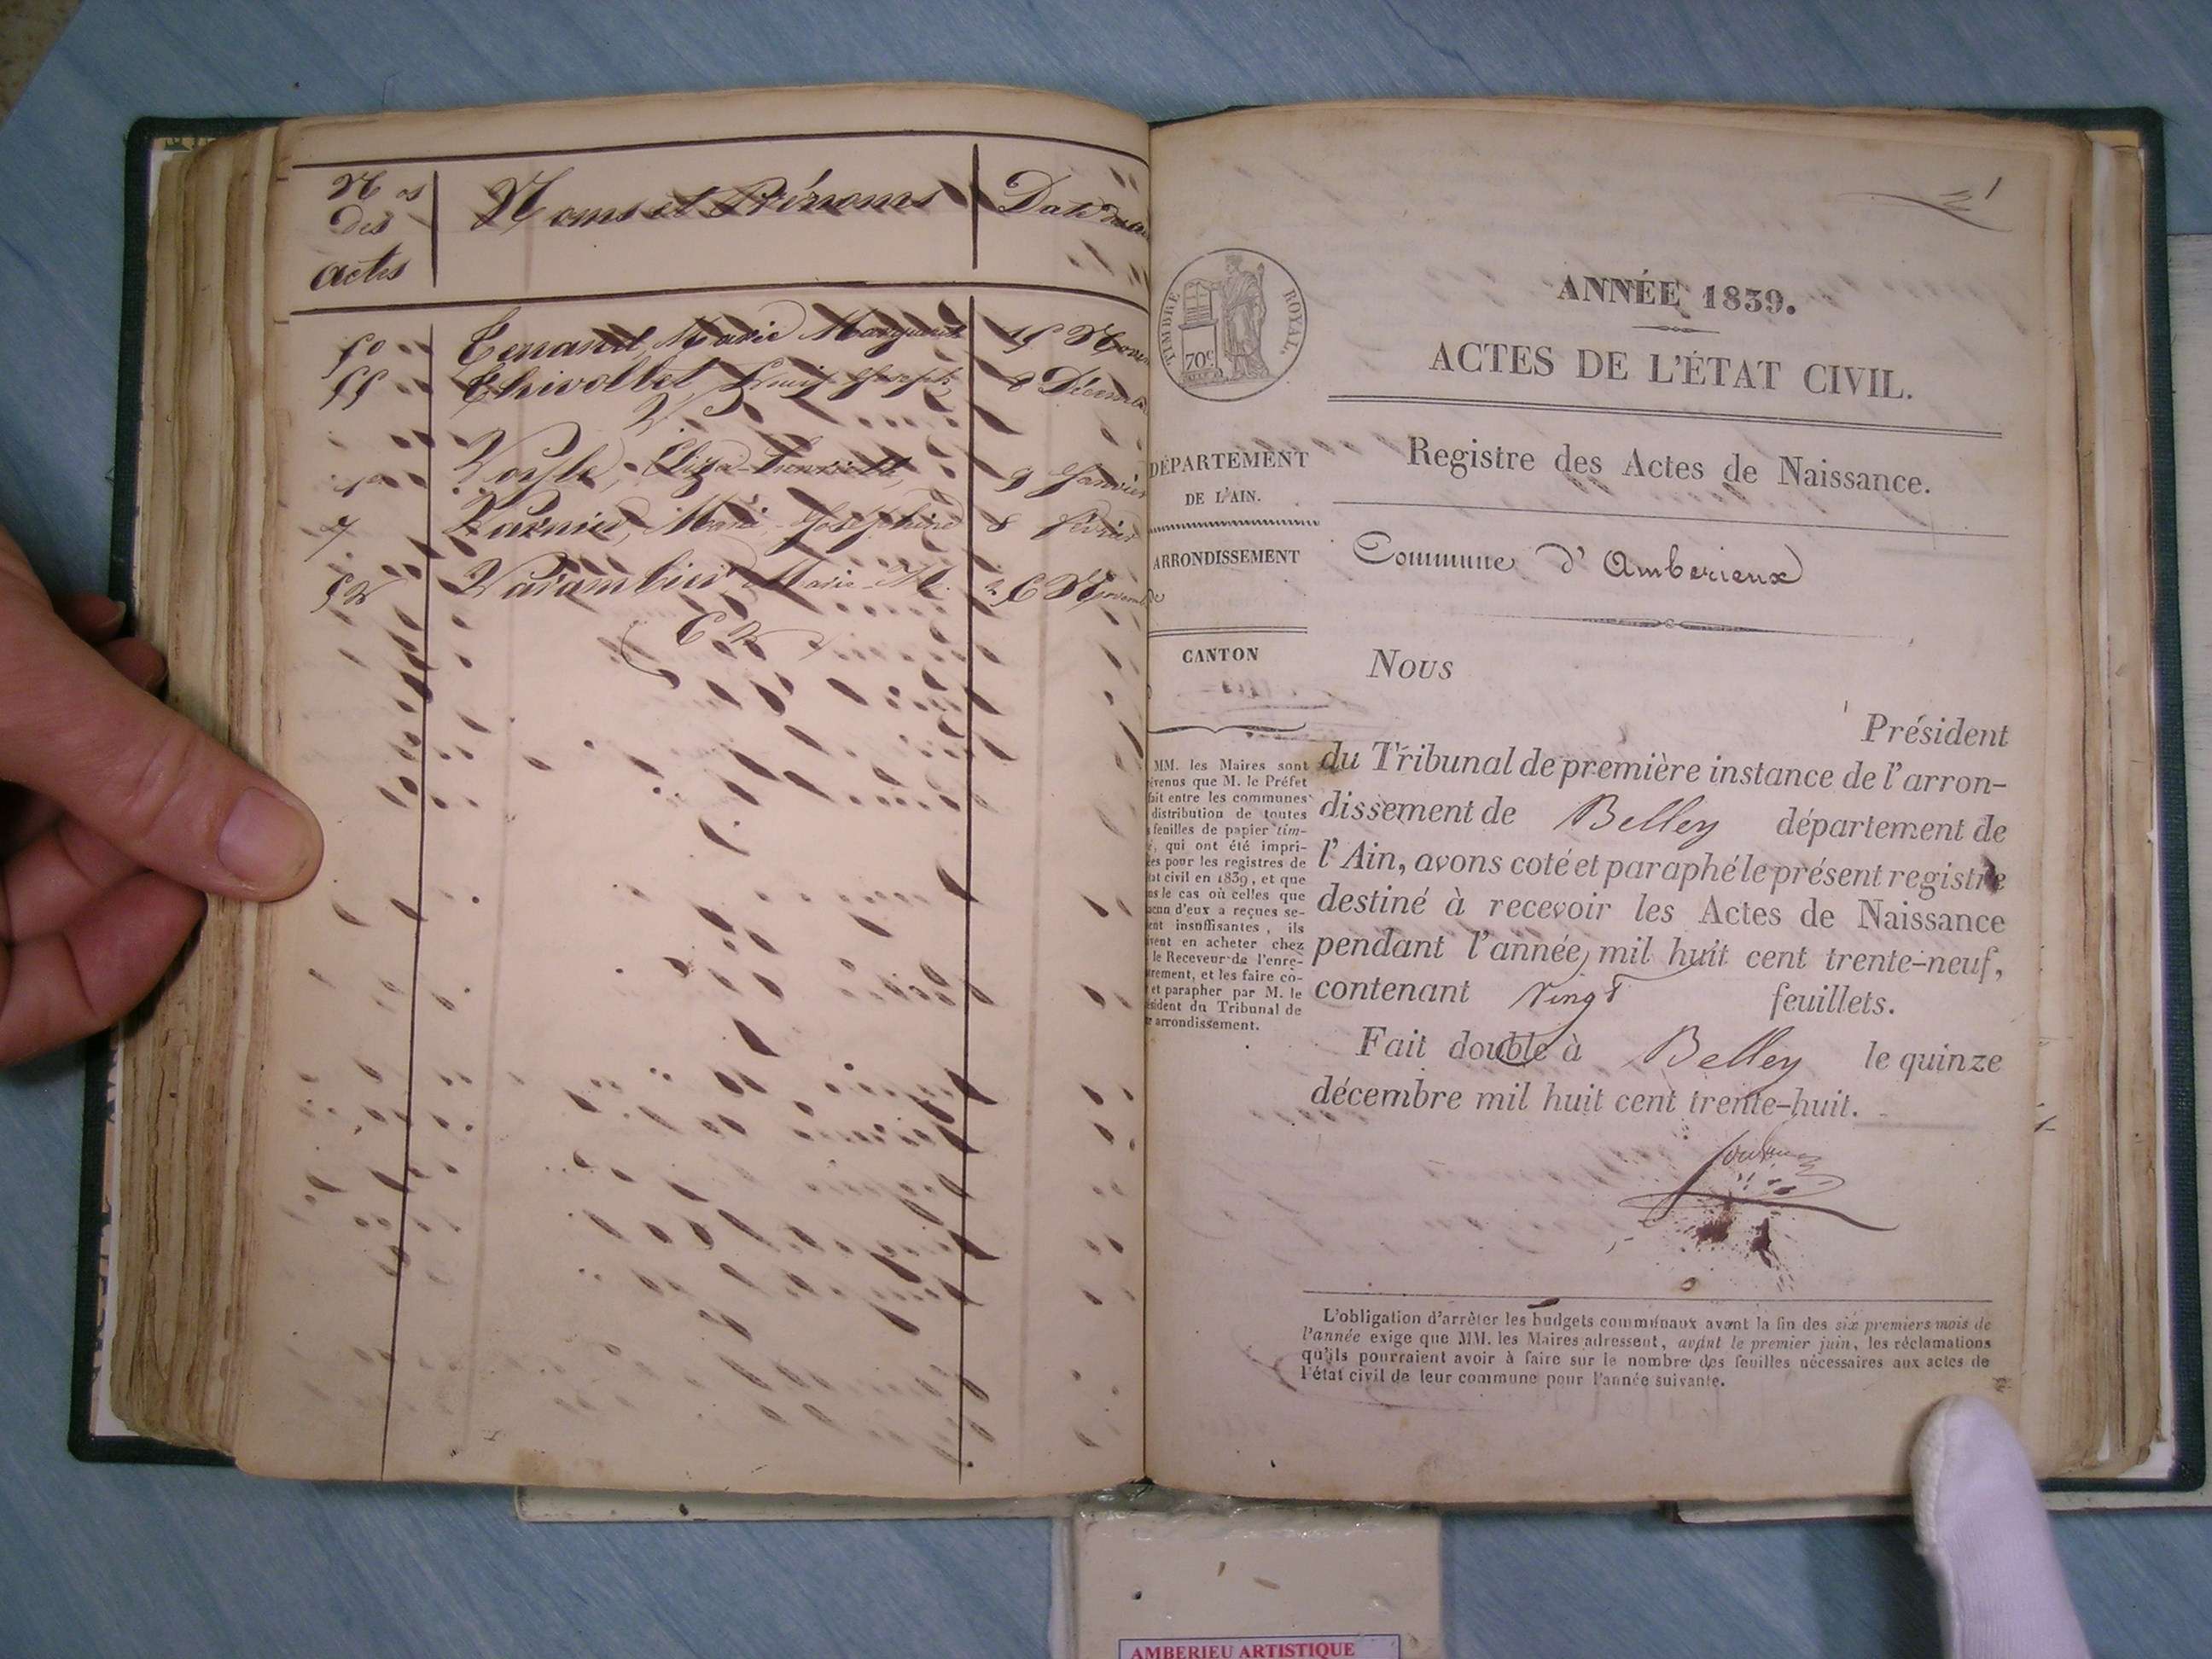 Nos
des
actes
Noms et Prénoms
Date des
50 Tenand, Marie Marguerite 15 Novem
55 Thivollet Louis Joseph 8 Décemb
V
Voyle, Eliza 9 Janvier
7 Varnier, Marie Josephine 8 février
52 Varambier Marie M. 26 Novembre
1
TIMBRE ROYAL.
70c
ANNÉE 1839.
ACTES DE L'ÉTAT CIVIL.
DÉPARTEMENT
DE L'AIN.
Registre des Actes de Naissance.
ARRONDISSEMENT
Commune d'Amberieux
CANTON
Nous
Président
du Tribunal de première instance de l'arron-
dissement de Belley département de
l'Ain, avons coté et paraphé le présent registre
destiné à recevoir les Actes de Naissance
pendant l'année mil huit cent trente-neuf,
contenant vingt feuillets.
Fait double à Belley le quinze
décembre mil huit cent trente-huit.
MM. les Maires sont
évenus que M. le Préfet
fait entre les communes
distribution de toutes
feuilles de papier tim-
é, qui ont été impri-
es pour les registres de
at civil en 1839, et que
ns le cas où celles que
acun d'eux a reçues se-
ent insuffisantes, ils
ivent en acheter chez
le Receveur de l'enre-
rement, et les faire co-
et parapher par M. le
ésident du Tribunal de
r arrondissement.
L'obligation d'arrêter les budgets communaux avant la fin des six premiers mois de
l'année exige que MM. les Maires adressent, avant le premier juin, les réclamations
qu'ils pourraient avoir à faire sur le nombre des feuilles nécessaires aux actes de
l'état civil de leur commune pour l'année suivante.
AMBERIEU ARTISTIQUE